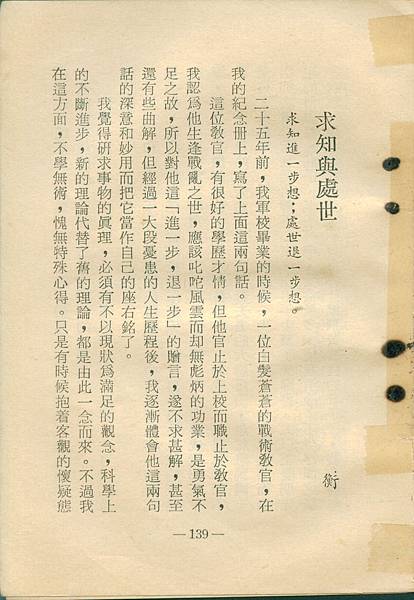 求知與處世
衡
求知進一步想；處世退一步想。
二十五年前，我軍校畢業的時候，一位白髮蒼蒼的戰術教官，在
我的紀念册上，寫了上面這兩句話。
這位教官，有很好的學歷才情，但他官止於上校而職止於教官，
我認爲他生逢戰亂之世，應該叱咤風雲而却無彪炳的功業，是勇氣不
足之故，所以對他這「進一步，退一步」的贈言，遂不求甚解，甚至
還有些曲解，但經過一大段憂患的人生歷程後，我逐漸體會他這兩句
話的深意和妙用而把它當作自己的座右銘了。
我覺得研求事物的眞理，必須有不以現狀爲滿足的觀念，科學上
的不斷進步，新的理論代替了舊的理論，都是由此一念而來。不過我
在這方面，不學無術，愧無特殊心得。只是有時候抱着客觀的懷疑態
—139—